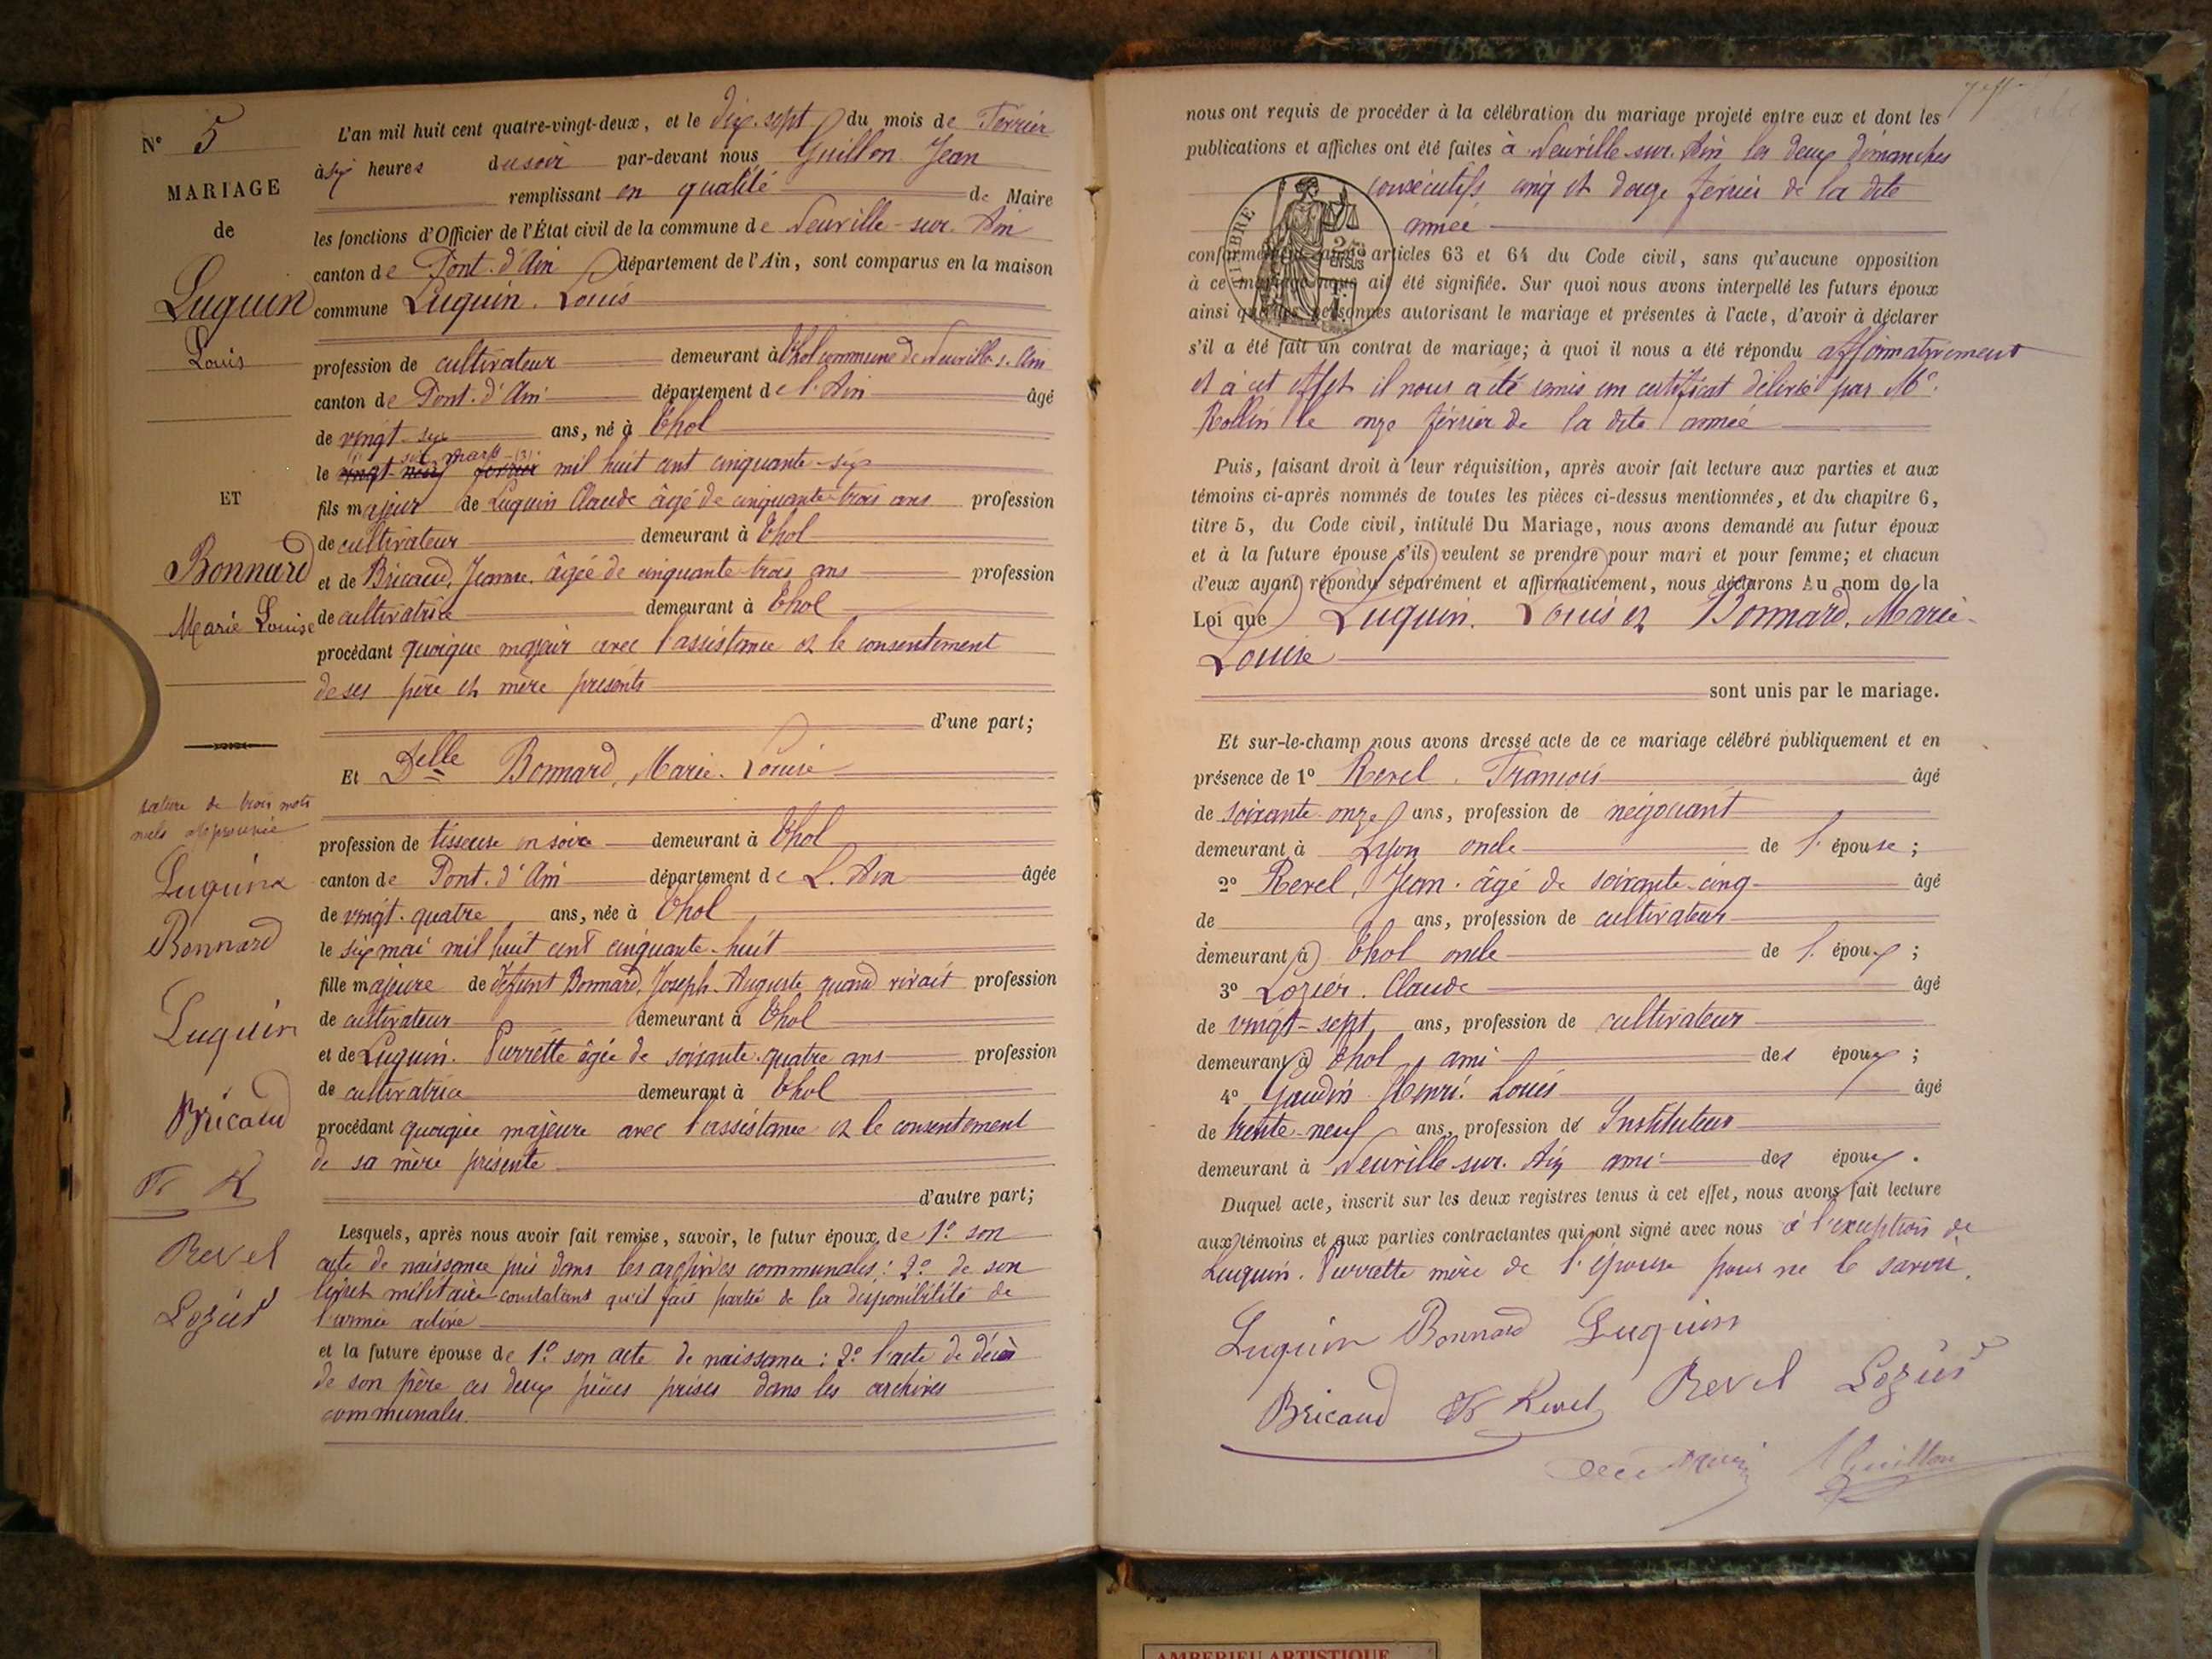 N° 5
MARIAGE
de
Luguin
Louis
ET
Bonnard
Marie Louise
rature de trois mots
nuls approuvée
Luguin
Bonnard
Luguin
Bricaud
Fr R
Revel
Lozier
L'an mil huit cent quatre-vingt-deux, et le dix-sept du mois de Février
à six heures du soir par-devant nous Guillon Jean
remplissant en qualité de Maire
les fonctions d'Officier de l'État civil de la commune de Neuville-sur-Ain
canton de Pont-d'Ain département de l'Ain, sont comparus en la maison
commune Luguin Louis
profession de cultivateur demeurant à Thol commune de Neuville s. Ain
canton de Pont-d'Ain département de l'Ain âgé
de vingt-six ans, né à Thol
six mars (3)
le vingt neuf février mil huit cent cinquante-six
fils majeur de Luguin Claude âgé de cinquante-trois ans profession
de cultivateur demeurant à Thol
et de Bricaud, Jeanne, âgée de cinquante-trois ans profession
de cultivatrice demeurant à Thol
procédant quoique majeur avec l'assistance et le consentement
de ses père et mère présents
d'une part;
Et Delle Bonnard, Marie-Louise
profession de tisseuse en soie demeurant à Thol
canton de Pont-d'Ain département de L'Ain âgée
de vingt-quatre ans, née à Thol
le six mai mil huit cent cinquante-huit
fille majeure de défunt Bonnard, Joseph-Auguste quand vivait profession
de cultivateur demeurant à Thol
et de Luguin Pierrette âgée de soixante-quatre ans profession
de cultivatrice demeurant à Thol
procédant quoique majeure avec l'assistance et le consentement
de sa mère présente
d'autre part;
Lesquels, après nous avoir fait remise, savoir, le futur époux de 1° son
acte de naissance pris dans les archives communales: 2° de son
livret militaire constatant qu'il fait partie de la disponibilité de
l'armée active
et la future épouse de 1° son acte de naissance: 2° l'acte de décès
de son père ces deux pièces prises dans les archives
communales.
nous ont requis de procéder à la célébration du mariage projeté entre eux et dont les
publications et affiches ont été faites à Neuville-sur-Ain les deux dimanches
consécutifs cinq et douze février de la dite
année
conformément aux articles 63 et 64 du Code civil, sans qu'aucune opposition
à ce mariage nous ait été signifiée. Sur quoi nous avons interpellé les futurs époux
ainsi que les personnes autorisant le mariage et présentes à l'acte, d'avoir à déclarer
s'il a été fait un contrat de mariage; à quoi il nous a été répondu affirmativement
et à cet effet il nous a été remis un certificat délivré par Me
Rollin le onze février de la dite année
TIMBRE
Puis, faisant droit à leur réquisition, après avoir fait lecture aux parties et aux
témoins ci-après nommés de toutes les pièces ci-dessus mentionnées, et du chapitre 6,
titre 5, du Code civil, intitulé Du Mariage, nous avons demandé au futur époux
et à la future épouse s'ils veulent se prendre pour mari et pour femme; et chacun
d'eux ayant répondu séparément et affirmativement, nous déclarons Au nom de la
Loi que Luguin Louis et Bonnard, Marie-
Louise
sont unis par le mariage.
Et sur-le-champ nous avons dressé acte de ce mariage célébré publiquement et en
présence de 1° Revel François âgé
de soixante-onze ans, profession de négociant
demeurant à Lyon oncle de l'épouse;
2° Revel, Jean âgé de soixante-cinq âgé
de ans, profession de cultivateur
demeurant à Thol oncle de l'époux;
3° Lozier Claude âgé
de vingt-sept ans, profession de cultivateur
demeurant à Thol ami des époux;
4° Gaudin Henri Louis âgé
de trente-neuf ans, profession de Instituteur
demeurant à Neuville-sur-Ain ami des époux.
Duquel acte, inscrit sur les deux registres tenus à cet effet, nous avons fait lecture
aux témoins et aux parties contractantes qui ont signé avec nous à l'exception de
Luguin Pierrette mère de l'épouse pour ne le savoir.
Luguin Bonnard Luguin
Bricaud Fr Revel Revel Lozier
Guillon
AMBERIEU ARTISTIQUE